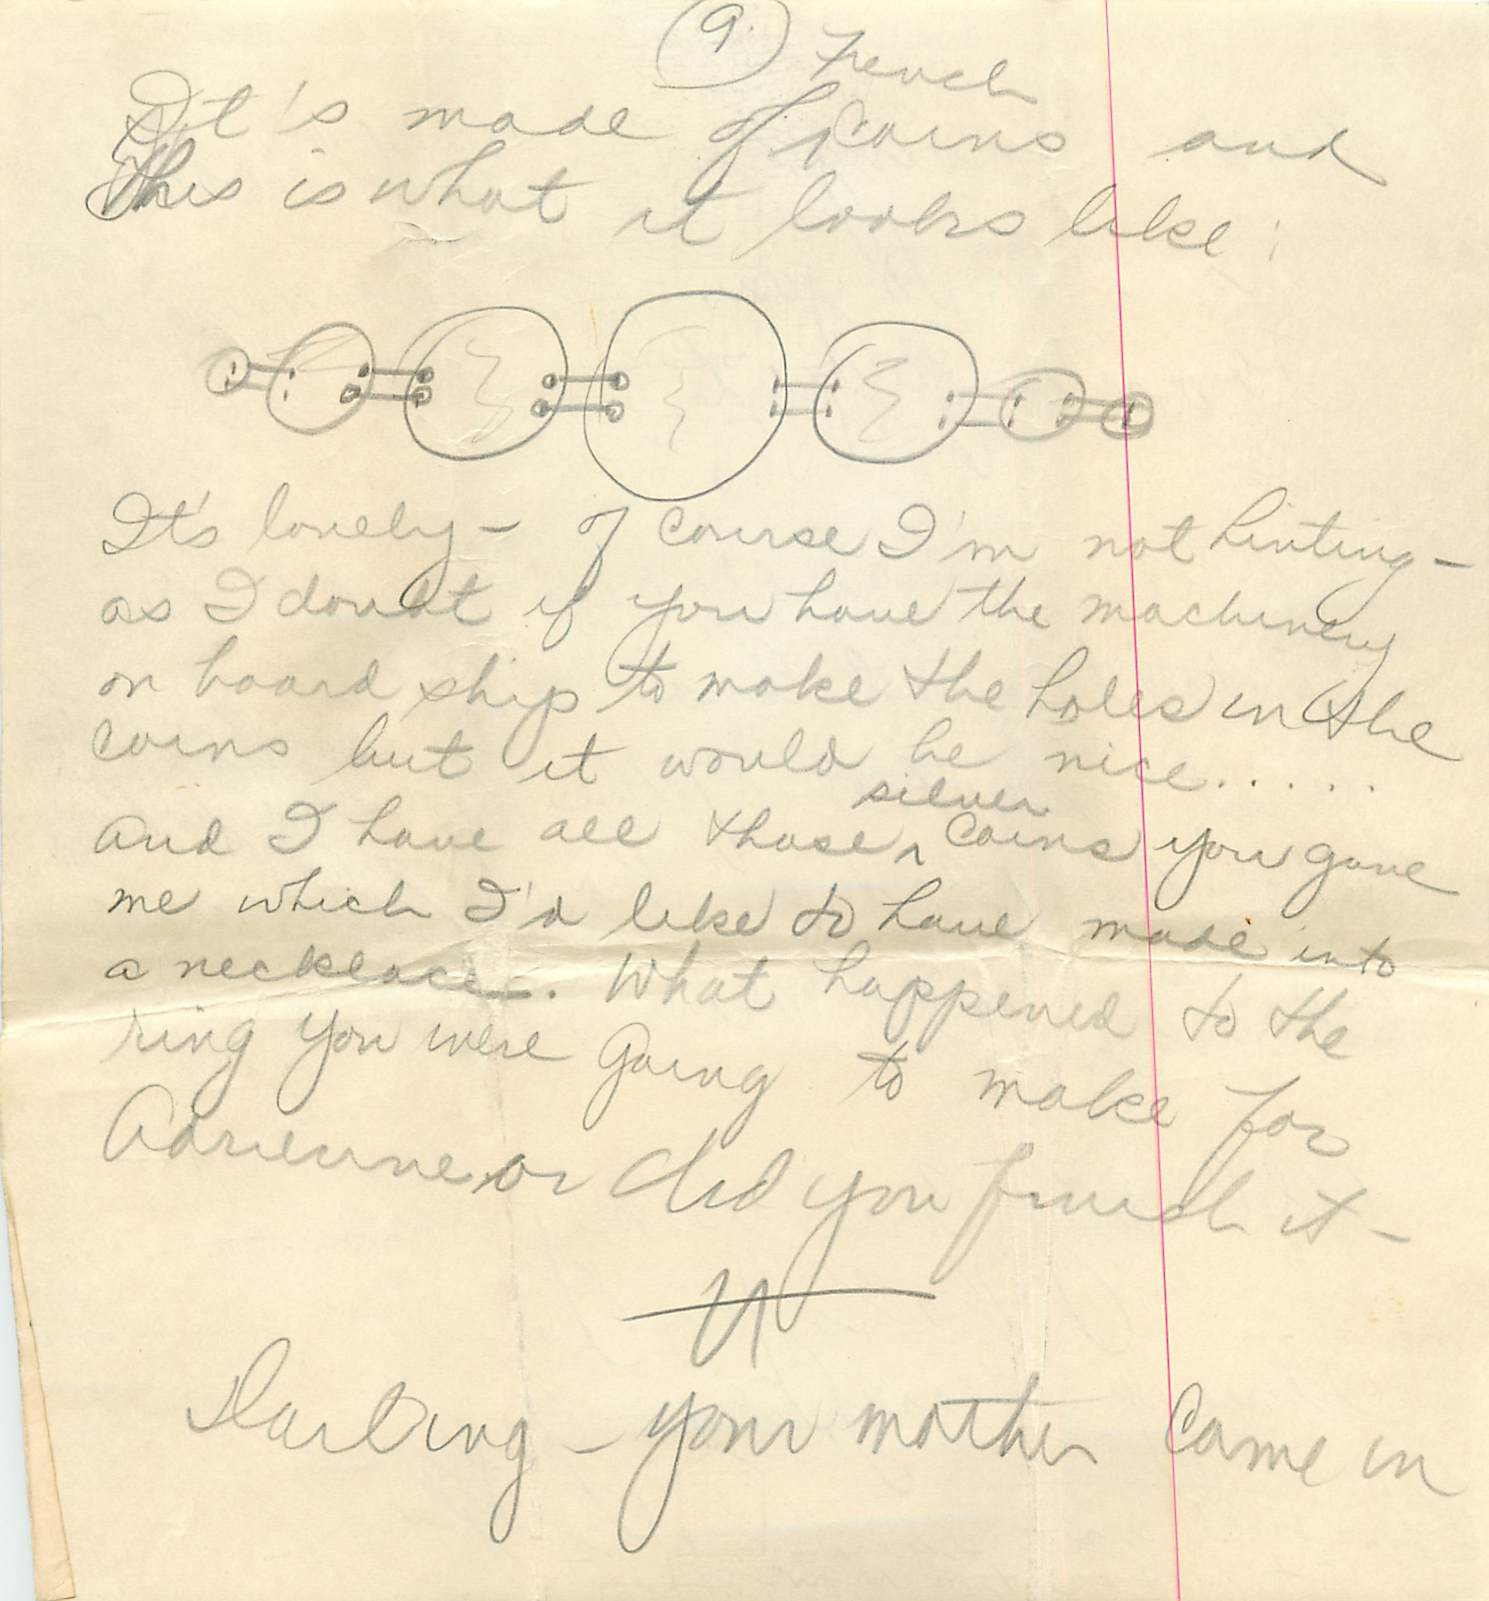 9.
It's made of French coins and
this is what it looks like:
It's lovely - of course I'm not hinting -
as I doubt if you have the machinery
on board ship to make the holes in the
coins but it would be nice.....
And I have all those silver coins you gave
me which I'd like to have made into
a necklace. What happened to the
ring you were going to make for
Adrienne or did you finish it -
Darling - your mother came in